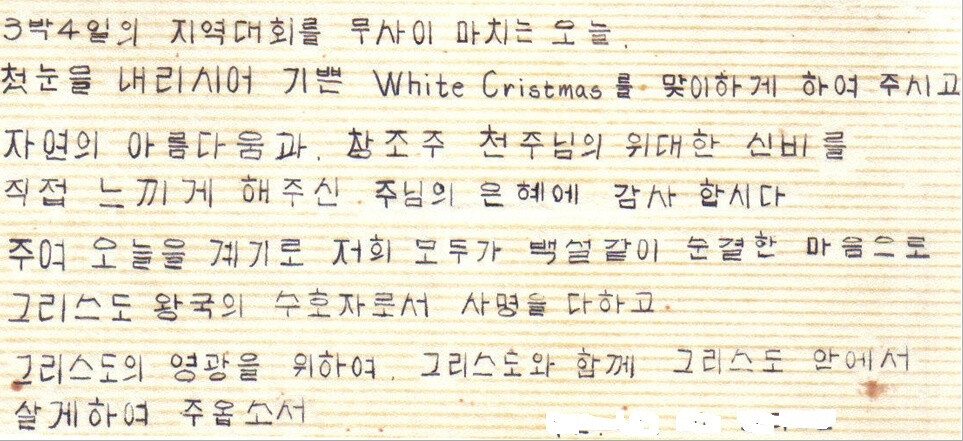 3박4일의 지역대회를 무사이 마치는 오늘.
첫눈을 내리시어 기쁜 White Cristmas를 맞이하게 하여 주시고
자연의 아름다움과. 창조주 천주님의 위대한 신비를
직접 느끼게 해주신 주님의 은혜에 감사 합시다
주여 오늘을 계기로 저희 모두가 백설같이 순결한 마음으로
그리스도 왕국의 수호자로서 사명을 다하고
그리스도의 영광을 위하여. 그리스도와 함께 그리스도 안에서
살게하여 주옵소서